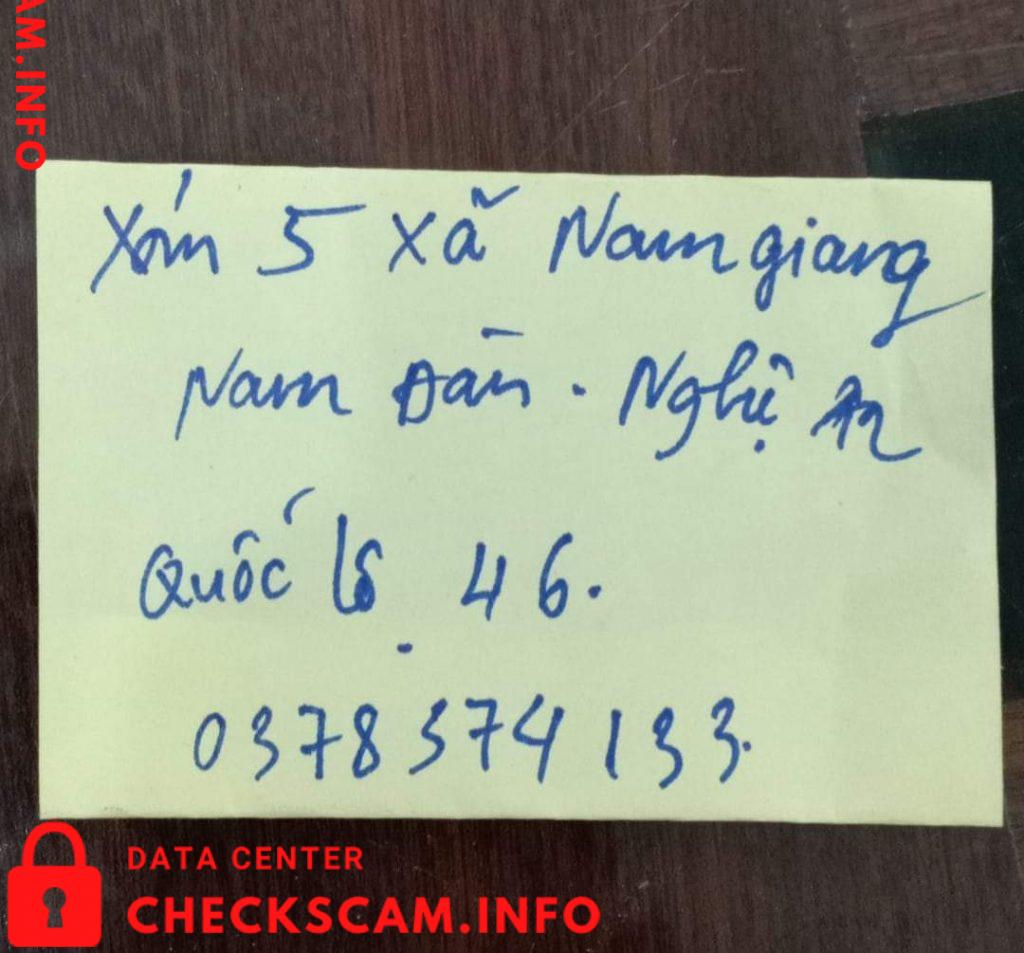 AM.INFO
Xóm 5 xã Nam giang
Nam Đàn. Nghệ An
Quốc lộ 46.
0378374133.
DATA CENTER
CHECKSCAM.INFO